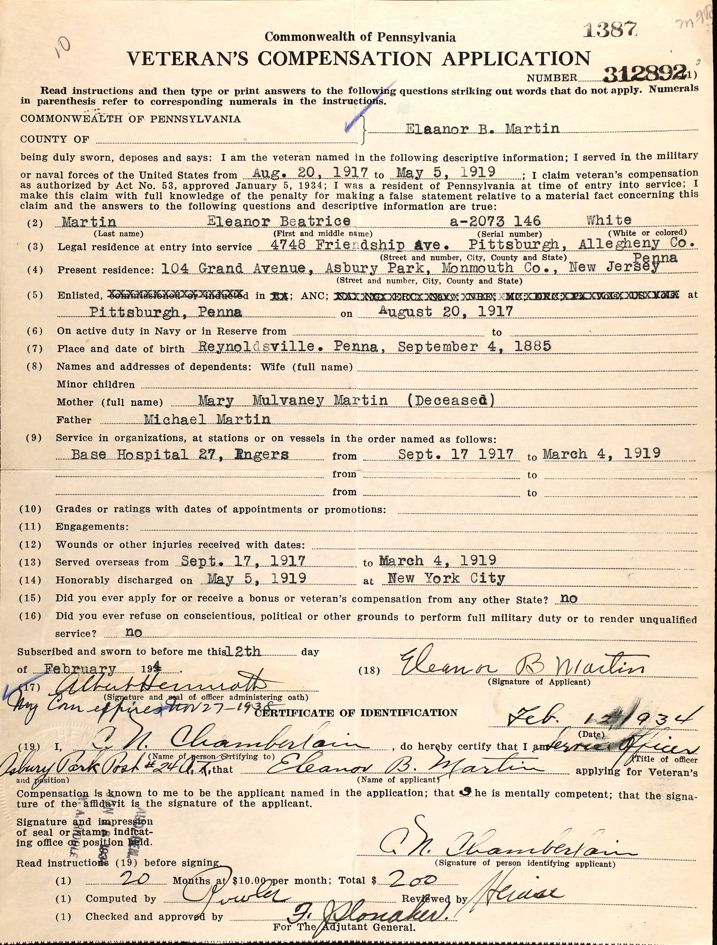 10
1387
Commonwealth of Pennsylvania
VETERAN'S COMPENSATION APPLICATION
NUMBER 312892 1)
Read instructions and then type or print answers to the following questions striking out words that do not apply. Numerals
in parenthesis refer to corresponding numerals in the instructions.
COMMONWEALTH OF PENNSYLVANIA
COUNTY OF } Eleanor B. Martin
being duly sworn, deposes and says: I am the veteran named in the following descriptive information; I served in the military
or naval forces of the United States from Aug. 20, 1917 to May 5, 1919 ; I claim veteran's compensation
as authorized by Act No. 53, approved January 5, 1934; I was a resident of Pennsylvania at time of entry into service; I
make this claim with full knowledge of the penalty for making a false statement relative to a material fact concerning this
claim and the answers to the following questions and descriptive information are true:
(2) Martin Eleanor Beatrice a-2073 146 White
(Last name) (First and middle name) (Serial number) (White or colored)
(3) Legal residence at entry into service 4748 Friendship Ave. Pittsburgh, Allegheny Co.
(Street and number, City, County and State) Penna
(4) Present residence: 104 Grand Avenue, Asbury Park, Monmouth Co., New Jersey
(Street and number, City, County and State)
(5) Enlisted, commissioned or inducted in RA; ANC; at
Pittsburgh, Penna on August 20, 1917
(6) On active duty in Navy or in Reserve from to
(7) Place and date of birth Reynoldsville. Penna, September 4, 1885
(8) Names and addresses of dependents: Wife (full name)
Minor children
Mother (full name) Mary Mulvaney Martin (Deceased)
Father Michael Martin
(9) Service in organizations, at stations or on vessels in the order named as follows:
Base Hospital 27, Angers from Sept. 17 1917 to March 4, 1919
from to
from to
(10) Grades or ratings with dates of appointments or promotions:
(11) Engagements:
(12) Wounds or other injuries received with dates:
(13) Served overseas from Sept. 17, 1917 to March 4, 1919
(14) Honorably discharged on May 5, 1919 at New York City
(15) Did you ever apply for or receive a bonus or veteran's compensation from any other State? no
(16) Did you ever refuse on conscientious, political or other grounds to perform full military duty or to render unqualified
service? no
Subscribed and sworn to before me this 12th day
of February 194. (18) Eleanor B Martin
(Signature of Applicant)
(17) Albert Hemmroth
(Signature and seal of officer administering oath)
My Com expires Nov 27-1938
CERTIFICATE OF IDENTIFICATION Feb. 12 1934
(Date)
(19) I, C. N. Chamberlain , do hereby certify that I am Service Officer
(Name of person certifying to) (Title of officer
Asbury Park Post #24 A.L, that Eleanor B. Martin applying for Veteran's
and position) (Name of applicant)
Compensation is known to me to be the applicant named in the application; that she is mentally competent; that the signa-
ture of the affidavit is the signature of the applicant.
Signature and impression
of seal or stamp indicat-
ing office or position held.
C. N. Chamberlain
(Signature of person identifying applicant)
Read instructions (19) before signing.
(1) 20 Months at $10.00 per month; Total $ 200
(1) Computed by Fowler Reviewed by
(1) Checked and approved by F. J. Slonaker.
For The Adjutant General.